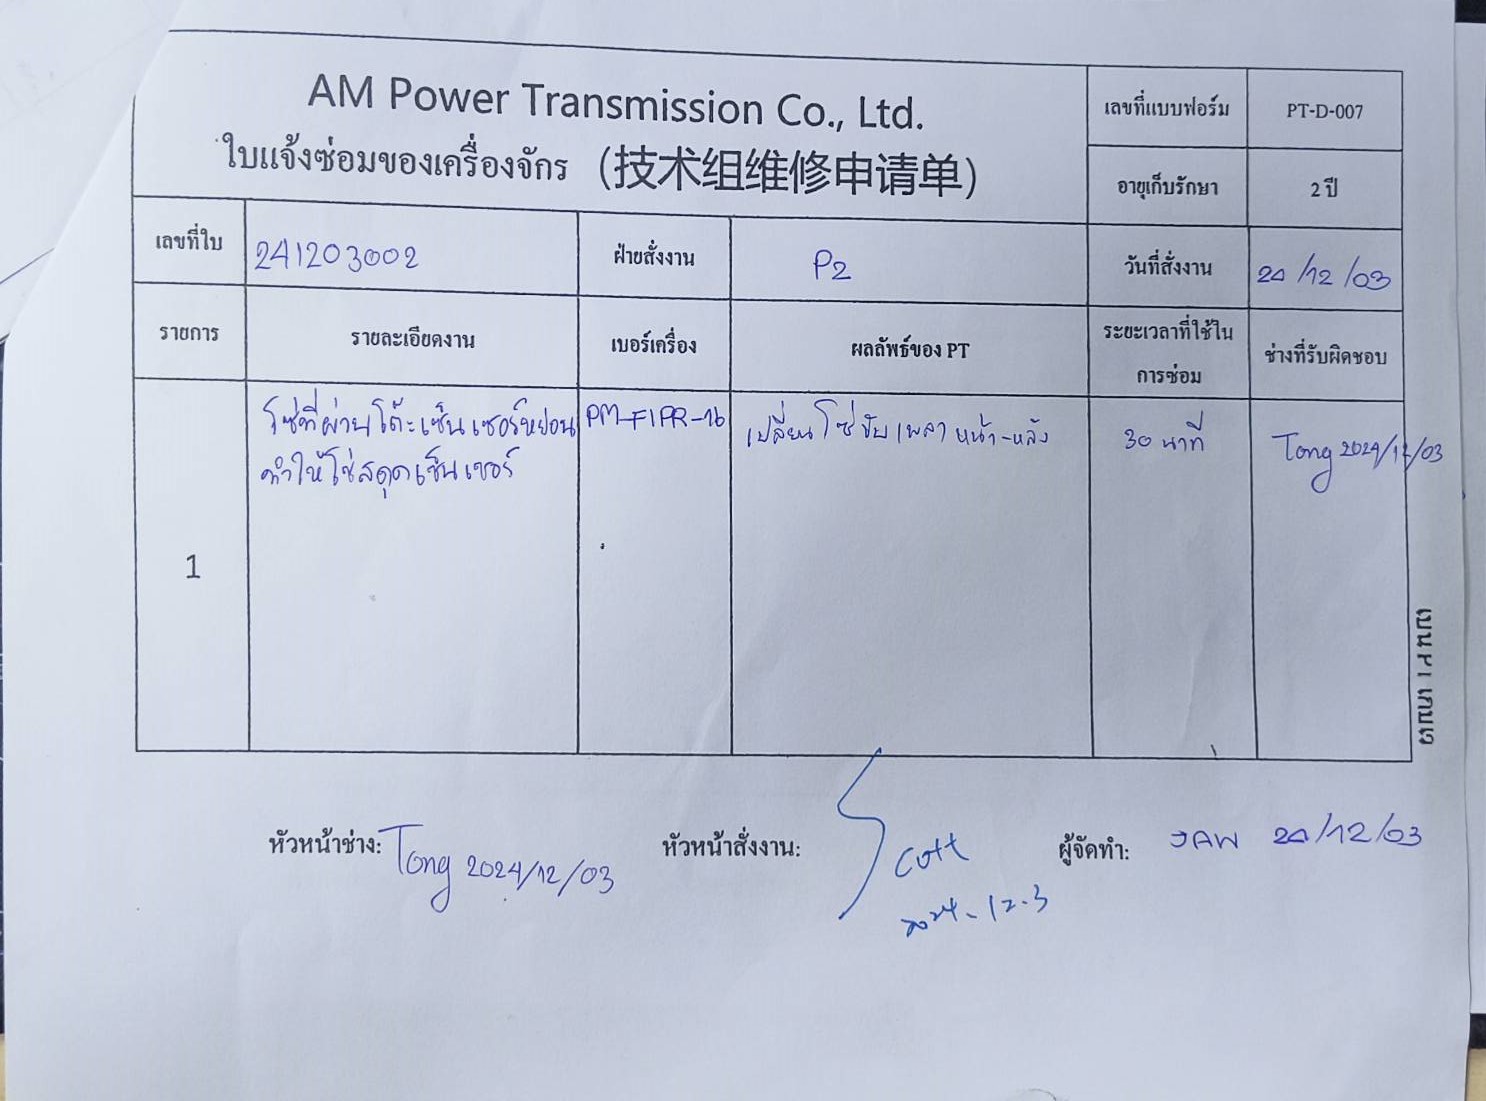 AM Power Transmission Co., Ltd.
ใบแจ้งซ่อมของเครื่องจักร (技术组维修申请单)
เลขที่แบบฟอร์ม
PT-D-007
อายุเก็บรักษา
2 ปี
เลขที่ใบ
241203002
ฝ่ายสั่งงาน
P2
วันที่สั่งงาน
24/12/03
รายการ
รายละเอียดงาน
เบอร์เครื่อง
ผลลัพธ์ของ PT
ระยะเวลาที่ใช้ใน
การซ่อม
ช่างที่รับผิดชอบ
1
โซ่ที่ผ่านโต๊ะเซ็นเซอร์หย่อน
ทำให้โซ่สดุดเซ็นเซอร์
PM-FIPR-16
เปลี่ยนโซ่ขับเพลาหน้า-หลัง
30 นาที
Tong 2024/12/03
หัวหน้าช่าง: Tong 2024/12/03
หัวหน้าสั่งงาน: Scott
2024-12-3
ผู้จัดทำ: JAW 24/12/03